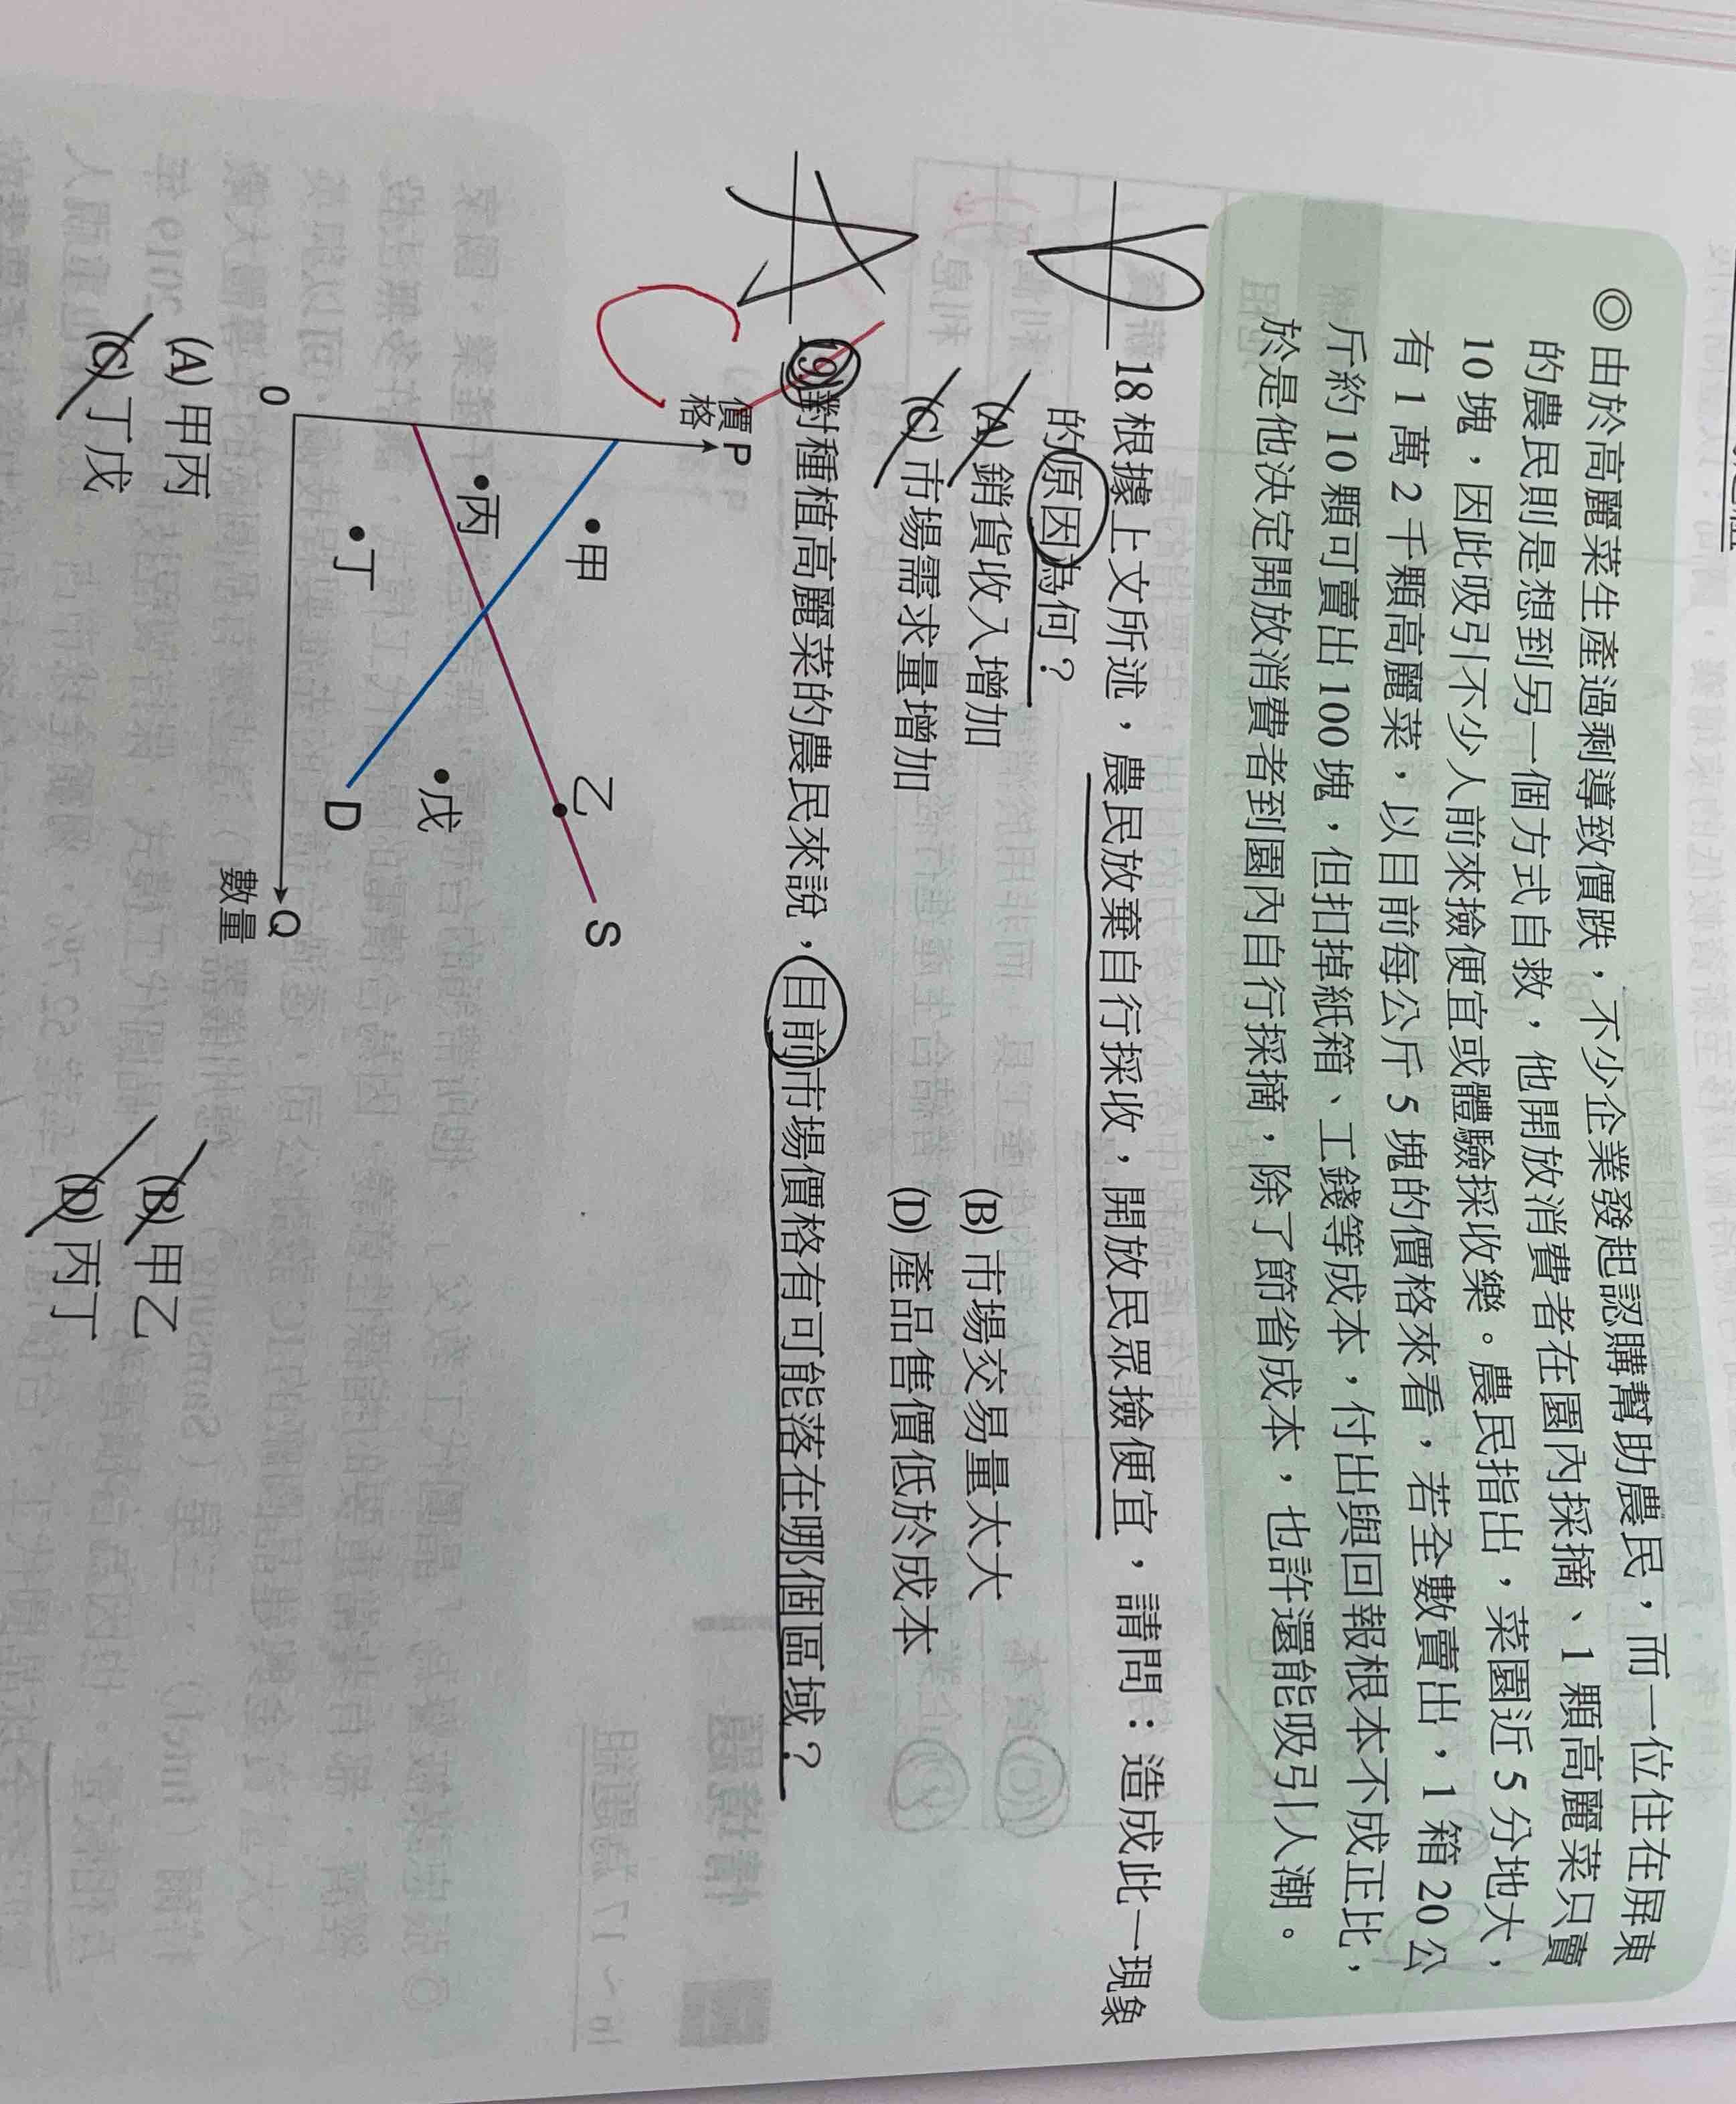 ◎由於高麗菜生產過剩導致價跌，不少企業發起認購幫助農民，而一位住在屏東
的農民則是想到另一個方式自救，他開放消費者在園內採摘、1顆高麗菜只賣
10塊，因此吸引不少人前來撿便宜或體驗採收樂。農民指出，菜園近5分地大，
有1萬2千顆高麗菜，以目前每公斤5塊的價格來看，若全數賣出，1箱20公
斤約10顆可賣出100塊，但扣掉紙箱、工錢等成本，付出與回報根本不成正比，
於是他決定開放消費者到園內自行採摘，除了節省成本，也許還能吸引人潮。
D 18.根據上文所述，農民放棄自行採收，開放民眾撿便宜，請問：造成此一現象
的原因為何？
(A)銷貨收入增加 (B)市場交易量太大
(C)市場需求量增加 (D)產品售價低於成本
A 19.對種植高麗菜的農民來說，目前市場價格有可能落在哪個區域？
C
價格 P
甲
乙
S
丙
戊
丁
D
0
Q
數量
(A)甲丙 (B)甲乙
(C)丁戊 (D)丙丁